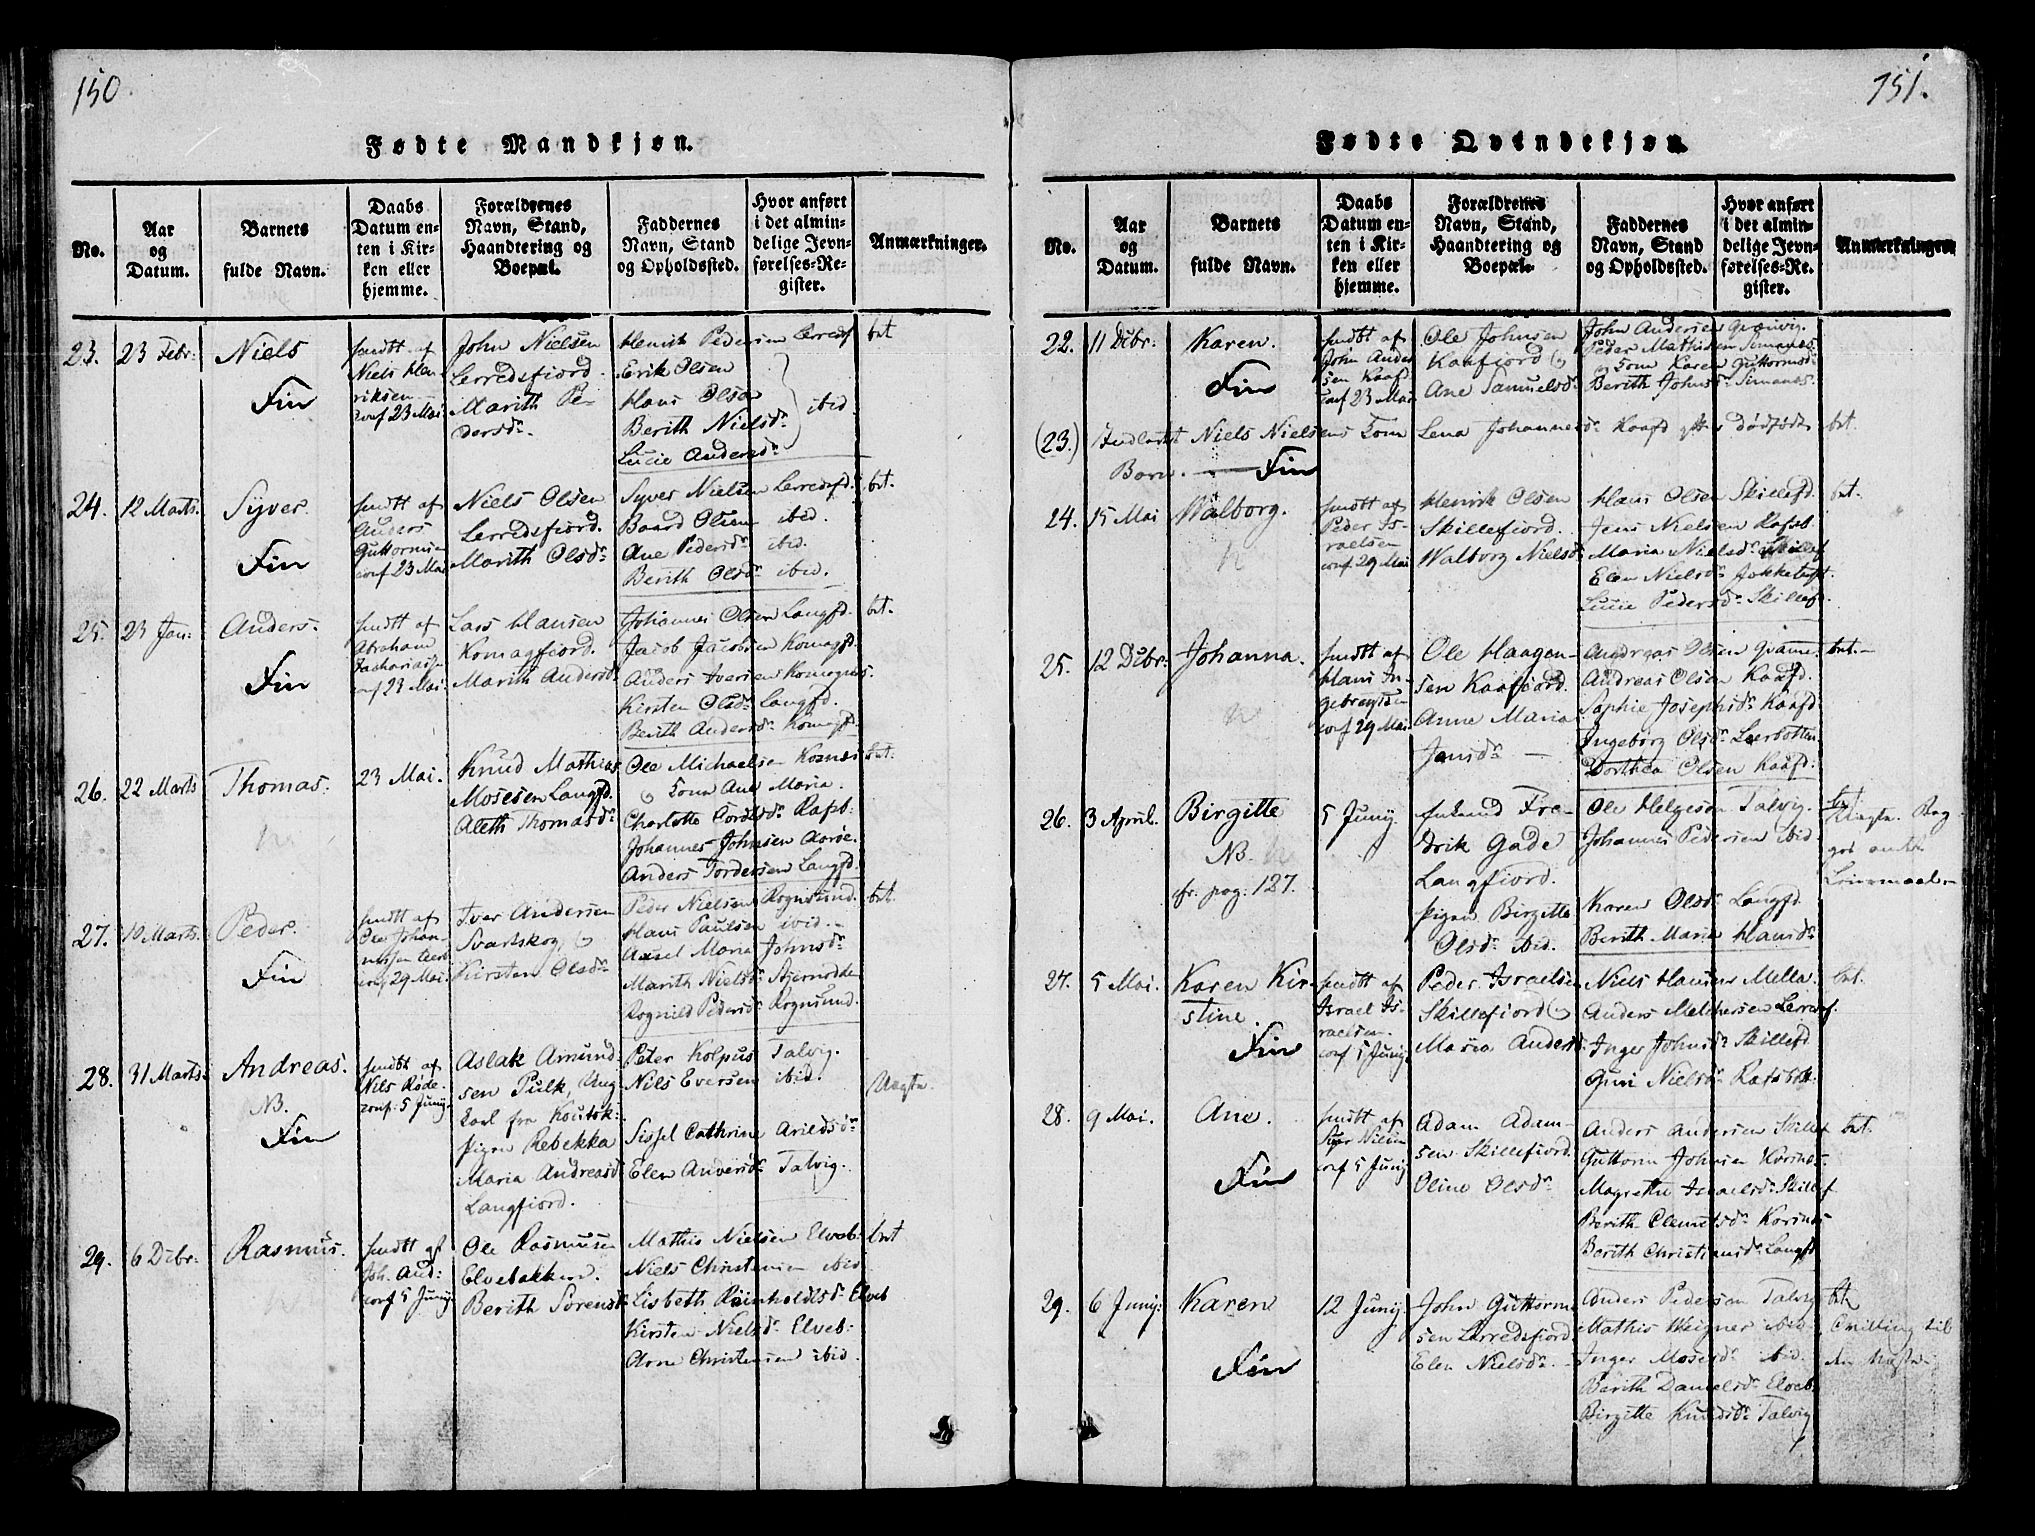 150.
Fødte Mandkjøn.
No.
Aar og Datum.
Barnets fulde Navn.
Daabs Datum enten i Kirken eller hjemme.
Forældrenes Navn, Stand, Haandtering og Boepæl.
Faddernes Navn, Stand og Opholdssted.
Hvor anført i det almindelige Jevnførelses-Register.
Anmærkninger.
23. 23 Febr:
Niels
Fin
hmdt. af
Niels Hen
riksen
conf 23 Mai
John Nielsen
Lerredsfiord.
Marith Pe-
dersdr.
Henrik Pedersen Lerredsf
Erik Olsen
Hans Olsen
Berith Nielsdr. ibid.
Lucie Andersdr
bt
24. 12 Marts.
Syver.
Fin
hmdt af
Anders
Guttormse
conf 23 Mai
Niels Olsen
Lerredsfiord.
Marith Olsdr
Syver Nielsen Lerredsfd.
Baard Olsen ibid.
Ane Pedersdr ibid.
Berith Olsdr ibid.
bt.
25. 23 Jan:
Anders.
Fin
hmdt af
Abraham
Zachariasse
conf 23 Mai
Lars Hansen
Komagfiord.
Marith Andersd
Johannes Olsen Langfd.
Jacob Jacobsen Komagf.
Anders Iversen Komagnes.
Kirsten Olsdr Langfd.
Berith Andersdr Komagf.
bt.
26. 22 Marts
Thomas.
23 Mai.
Knud Mathias
Mosesen Langfd.
Aleth Thomasdr
Ole Michaelsen Korsnes
og Kone Ane Maria.
Charlotte Cordtsdr Rafsb.
Johannes Johnsen Aarøe.
Anders Tordersen Langfd.
bt.
27. 10 Marts.
Peder.
Fin
hmdt af
Ole Johan-
nessen
conf 29 Mai
Iver Andersen
Svartskog, og
Kirsten Olsdr
Peder Nielsen Rognsund.
Hans Paulsen ibid.
Axsel Maria Johnsdr
Marith Nielsdr Stjernodde
Rognild Pedersdr Rognsund.
bt.
28. 31 Marts.
Andreas.
NB.
Fin
hmdt af
Nils Røde.
conf: 5 Junij
Aslak Amund-
sen Pulk, Ung
karl fra Koutok:
Pigen Rebekka
Maria Andreasd
Langfiord.
Peter Kolpus Talvig.
Nils Eversen ibid.
Sissel Cathrine Arildsdr
Elen Andersdr Talvig.
Uægte.
29. 6 Debr:
Rasmus.
hmdt af
Joh. And:
conf 5 Junij
Ole Rasmusen
Elvebakken.
Berith Sorensd
Mathis Nielsen Elveb:
Niels Christensen ibid
Lisbeth Reinholdtsdr Elveb
Kirsten Nielsdr Elveb:
Arne Christensen ibid.
bt
151.
Fødte Qvindekjøn.
No.
Aar og Datum.
Barnets fulde Navn.
Daabs Datum enten i Kirken eller hjemme.
Forældrenes Navn, Stand, Haandtering og Boepæl.
Faddernes Navn, Stand og Opholdssted.
Hvor anført i det almindelige Jevnførelses-Register.
Anmærkninger.
22. 11 Debr:
Karen.
Fin
hmdt af
John Ander
sen Kaafd.
conf 23 Mai
Ole Johnsen
Kaafiord og
Ane Samuelsdr
John Andersen
Peder Mathisen Simanes.
og Kone Karen Guttormsdr
Berith Johnsdr Simanes.
(23.) Niels Nielsens Kone Lena Johannesdr Kaafd dødfødte bt.
Barn. — Fin
24. 15 Mai
Walborg.
hmdt af
Peder Is-
raelsen
conf 29 Mai
Henrik Olsen
Skillefiord.
Walborg Nielsdr
Hans Olsen Skillefd.
Jens Nielsen Rafsb.
Maria Nielsdr Skillef
Elen Nielsdr Jokkeluft.
Lucie Pedersdr Skillef.
bt.
25. 12 Debr:
Johanna.
hmdt af
Hans In-
gebregtsen
conf 29 Mai
Ole Haagen-
sen Kaafiord.
Anne Maria
Jensdr —
Andreas Olsen
Andreas Olsen Kaafd.
Sophie Josephsdr Kaafd
Ingeborg Olsdr Leerbotten.
Dorthea Olsen Kaafd.
bt.
26. 3 April.
Birgitte
NB.
cfr. pag: 127.
5 Junij
Amund Fre-
drik Gade
Langfiord.
Pigen Birgitte
Olsdr ibid.
Ole Helgeson Talvig.
Johannes Pedersen ibid
Karen Olsdr Langfd.
Berith Maria Hansdr
bt
Uægte. Beg-
ges andet
Leiermaal
27. 5 Mai.
Karen Kir-
stine.
Fin
hmdt af
Israel Is-
raelsen.
conf 5 Junij
Peder Israelsen
Skillefiord og
Maria Andersd
Niels Hansen Mella.
Anders Melchersen Lerredsf.
Inger Johnsdr Skillefd
Guri Nielsdr Rafsbotn
bt.
28. 9 Mai.
Ane.
Fin
hmdt af
Syver Nilsen
conf 5 Junij
Adam Adam-
sen Skillefiord.
Oline Olsdr
Anders Andersen Skillef
Guttorm Johnsen Korsnes.
Magrethe Israelsdr Skillef
Berith Clemetsdr Korsnes
Berith Christiansdr Langfd
bt.
29. 6 Junij:
Karen
Fin
12 Junij
John Guttorm
sen Lerredsfiord.
Elen Nielsdr
Anders Pedersen Talvig
Mathis Weigner ibid
Inger Mosesdr ibid
Berith Danielsdr Elveb.
Birgitte Knudsdr Talvig
bt